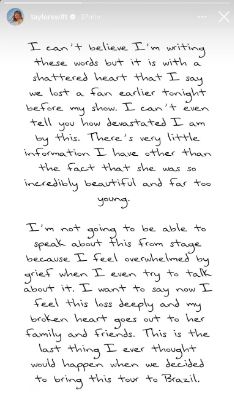 taylorswift 27мин
I can't believe I'm writing
these words but it is with a
shattered heart that I say
we lost a fan earlier tonight
before my show. I can't even
tell you how devastated I am
by this. There's very little
information I have other than
the fact that she was so
incredibly beautiful and far too
young.
I'm not going to be able to
speak about this from stage
because I feel overwhelmed by
grief when I even try to talk
about it. I want to say now I
feel this loss deeply and my
broken heart goes out to her
family and friends. This is the
last thing I ever thought
would happen when we decided
to bring this tour to Brazil.